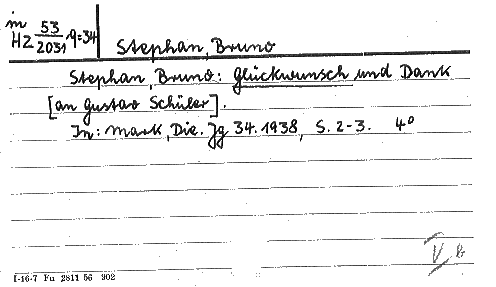 in
HZ 53/2031 9=34
Stephan, Bruno
Stephan, Bruno: Glückwunsch und Dank
[an Gustav Schüler].
In: Mark, Die. Jg 34. 1938, S. 2-3. 4°
V b
I-16-7 Fu 2811 56 902